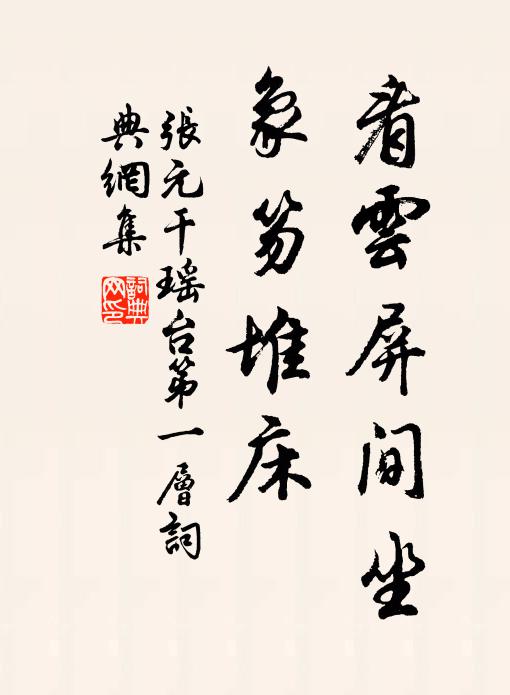 看雲屏間坐
象笏堆床
張元干瑶台第一層詞
典網集
詞典网印